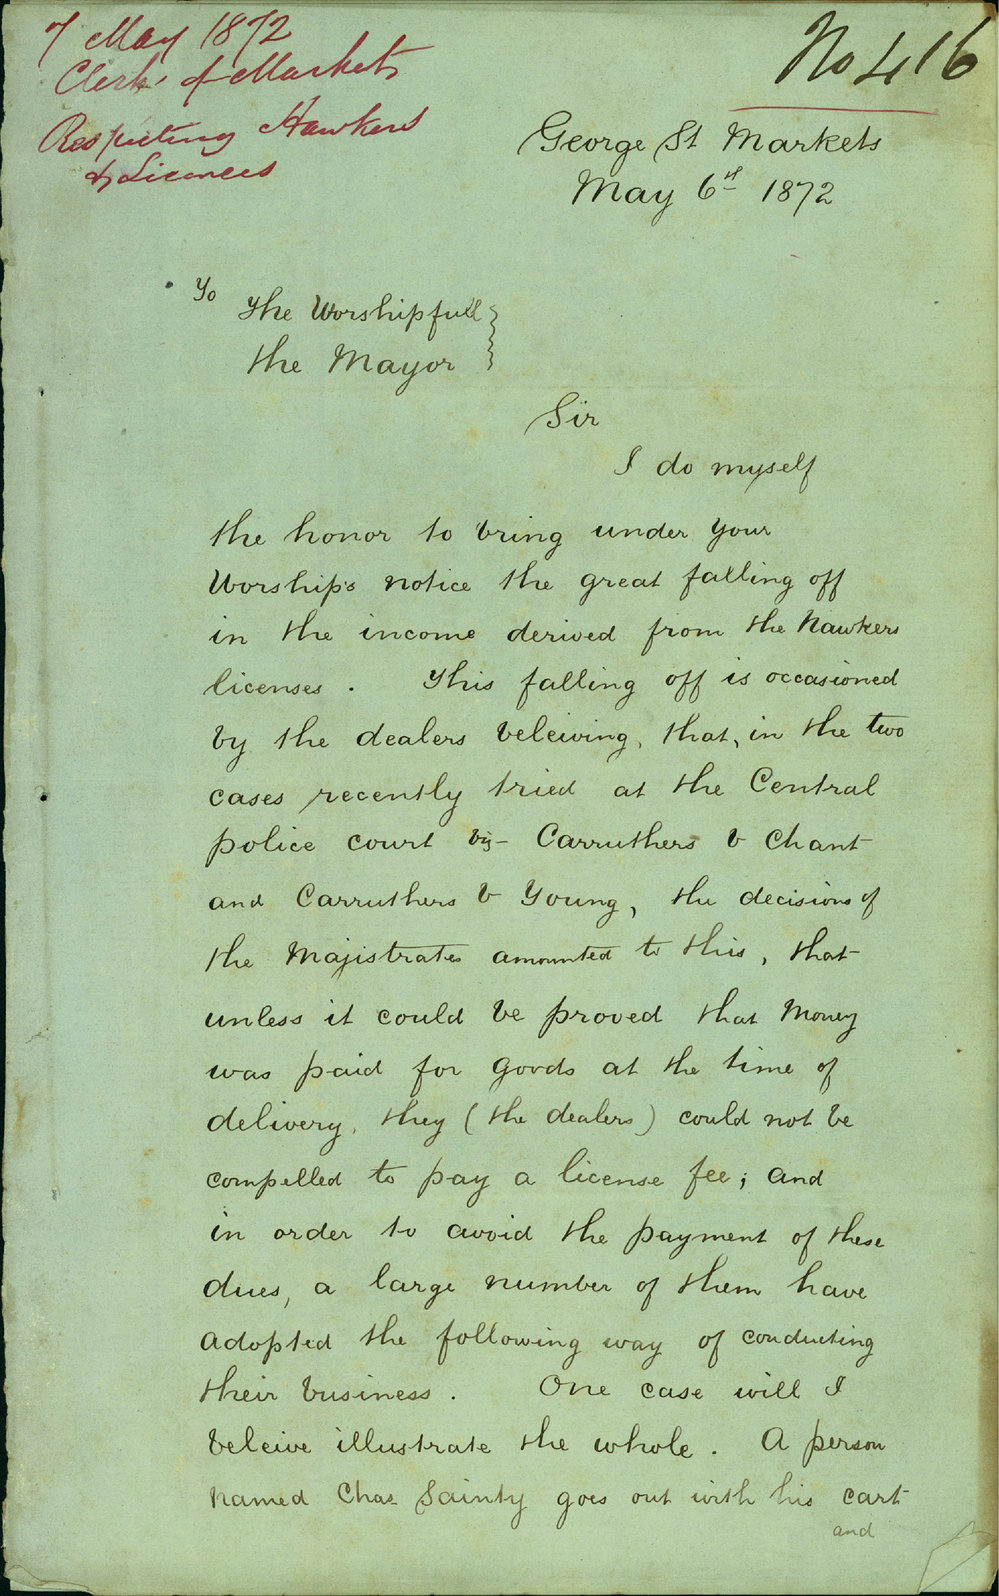 7 May 1872
Clerk of Markets
Respecting Hawkers
& Licences
No 416
George St Markets
May 6th 1872
To
The Worshipfull
the Mayor
Sir
I do myself
the honor to bring under your
Worship's notice the great falling off
in the income derived from the Hawkers
licenses . This falling off is occasioned
by the dealers beleiving, that, in the two
cases recently tried at the Central
police court viz- Carruthers v Chant
and Carruthers v Young, the decisions of
the Majistrates amounted to this, that
unless it could be proved that Money
was paid for goods at the time of
delivery, they (the dealers) could not be
compelled to pay a license fee; and
in order to avoid the payment of these
dues, a large number of them have
adopted the following way of conducting
their business . One case will I
beleive illustrate the whole . A person
named Chas Sainty goes out with his cart
and